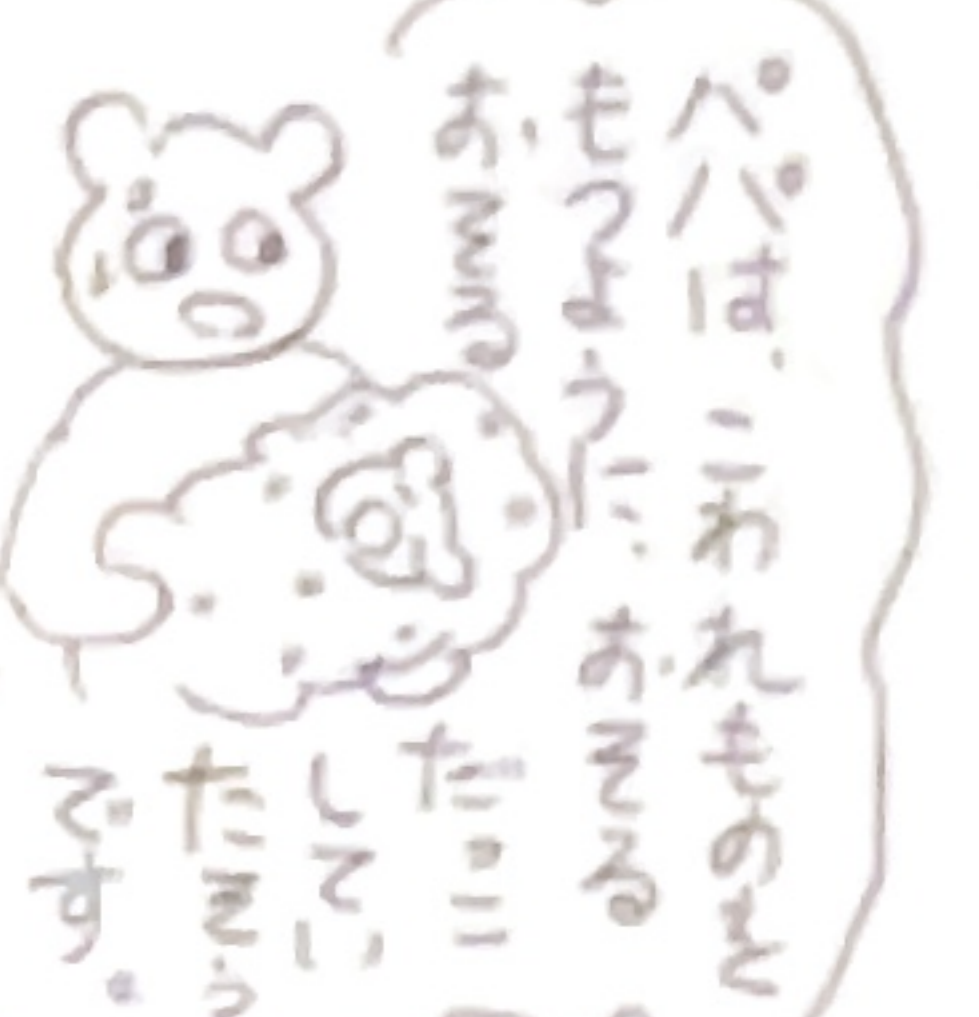 パパは、こわれものを
もつように、おそる
おそるだっこ
してい
たそう
です。